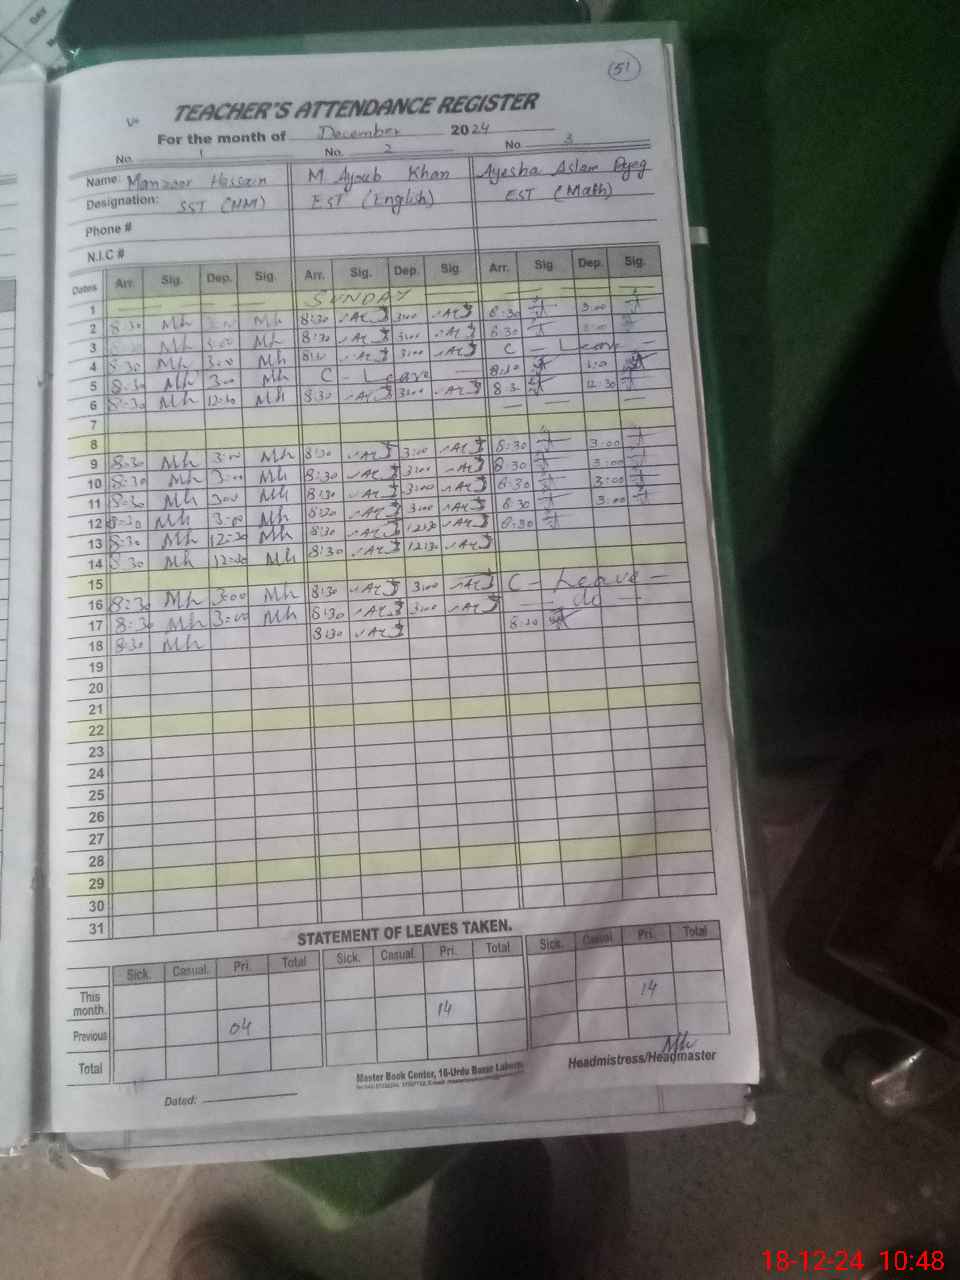 DAY
51
TEACHER'S ATTENDANCE REGISTER
For the month of December 2024
No. 1 No. 2 No. 3
Name: Manzoor Hussain M. Ayoub Khan Ayesha Aslam
Designation: SST (HM) EST (English) EST (Math)
Phone #
N.I.C #
Dates Arr. Sig. Dep. Sig. Arr. Sig. Dep. Sig. Arr. Sig. Dep. Sig.
1 SUNDAY
2 8:30 Mh 3:00 Mh 8:30 3:00 8:30 3:00
3 Mh 3:00 Mh 8:30 3:00 8:30
4 8:30 Mh 3:00 Mh 3:00 C - Leave -
5 8:30 Mh 3:00 Mh C - Leave 8:30
6 8:30 Mh 12:30 Mh 8:30 3:00 8:3 12:30
7
8
9 8:30 Mh 3:00 Mh 8:30 3:00 8:30 3:00
10 8:30 Mh 3:00 Mh 8:30 3:00 8:30 3:00
11 8:30 Mh 3:00 Mh 8:30 3:00 8:30 3:00
12 8:30 Mh 3:00 Mh 8:30 3:00 8:30 3:00
13 8:30 Mh 12:30 Mh 8:30 12:30 8:30
14 8:30 Mh 12:30 Mh 8:30 12:30
15
16 8:30 Mh 3:00 Mh 8:30 3:00 C - Leave -
17 8:30 Mh 3:00 Mh 8:30 3:00 - do -
18 8:30 Mh 8:30 8:30
19
20
21
22
23
24
25
26
27
28
29
30
31
STATEMENT OF LEAVES TAKEN.
Sick. Casual. Pri. Total Sick. Casual. Pri. Total Sick. Casual. Pri. Total
This month.
Previous 04 14 14
Total
Mh
Headmistress/Headmaster
Master Book Center, 16-Urdu Bazar Lahore
Dated:
18-12-24 10:48